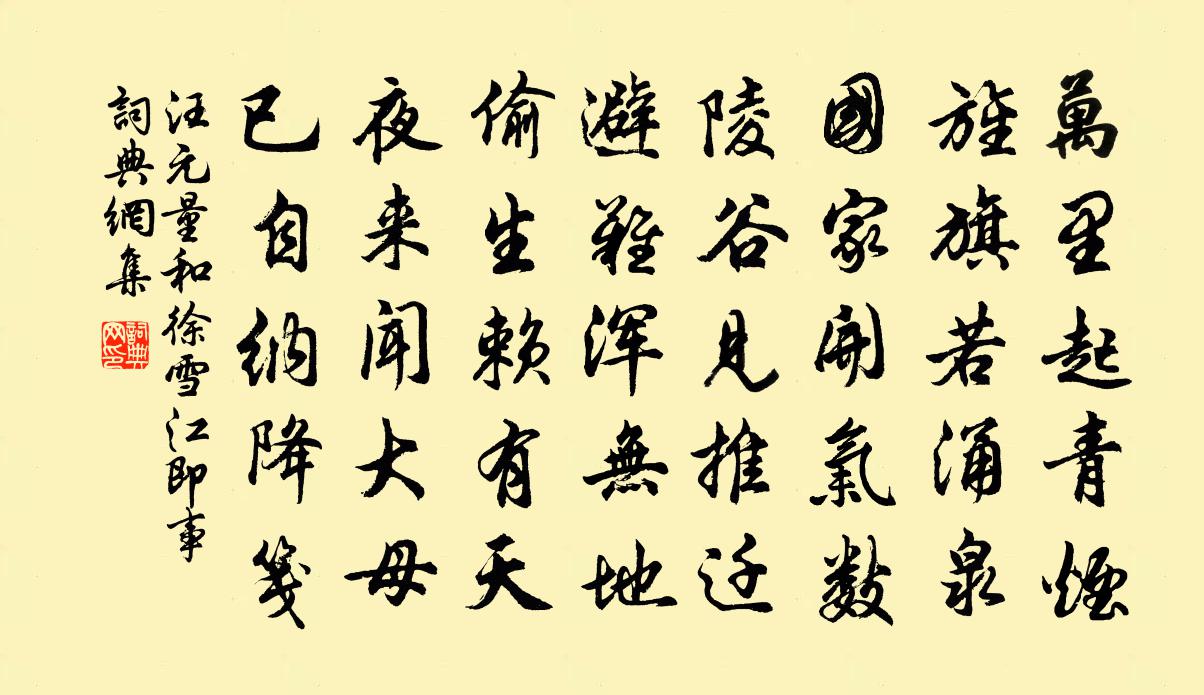 萬里起青煙
旌旗若涌泉
國家開氣數
陵谷見推迁
避難浑無地
偷生賴有天
夜来聞大母
已自納降箋
汪元量和徐雪江即事
詞典網集
詞典网印